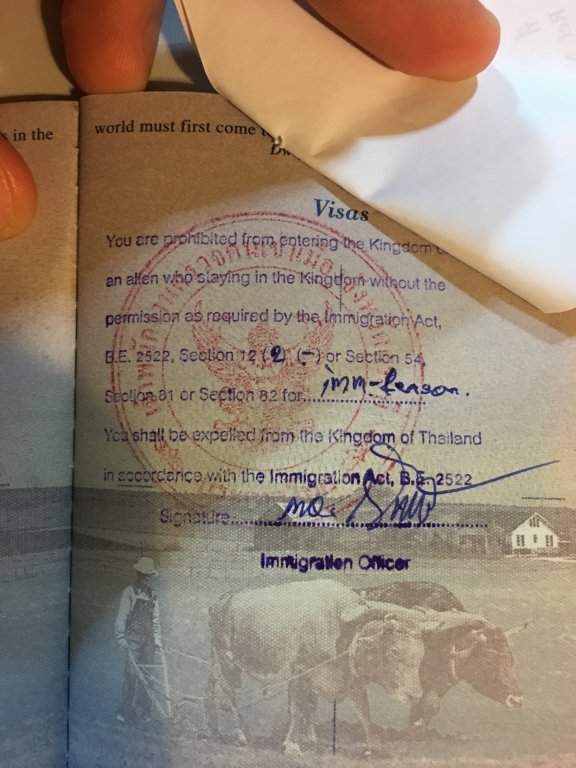 s in the
world must first come
Visas
You are prohibited from entering the Kingdom
an alien who staying in the Kingdom without the
permission as required by the Immigration Act,
B.E. 2522, Section 12 (2) (-) or Section 54,
Section 81 or Section 82 for imm-Reason.
You shall be expelled from the Kingdom of Thailand
in accordance with the Immigration Act, B.E. 2522
Signature
Immigration Officer